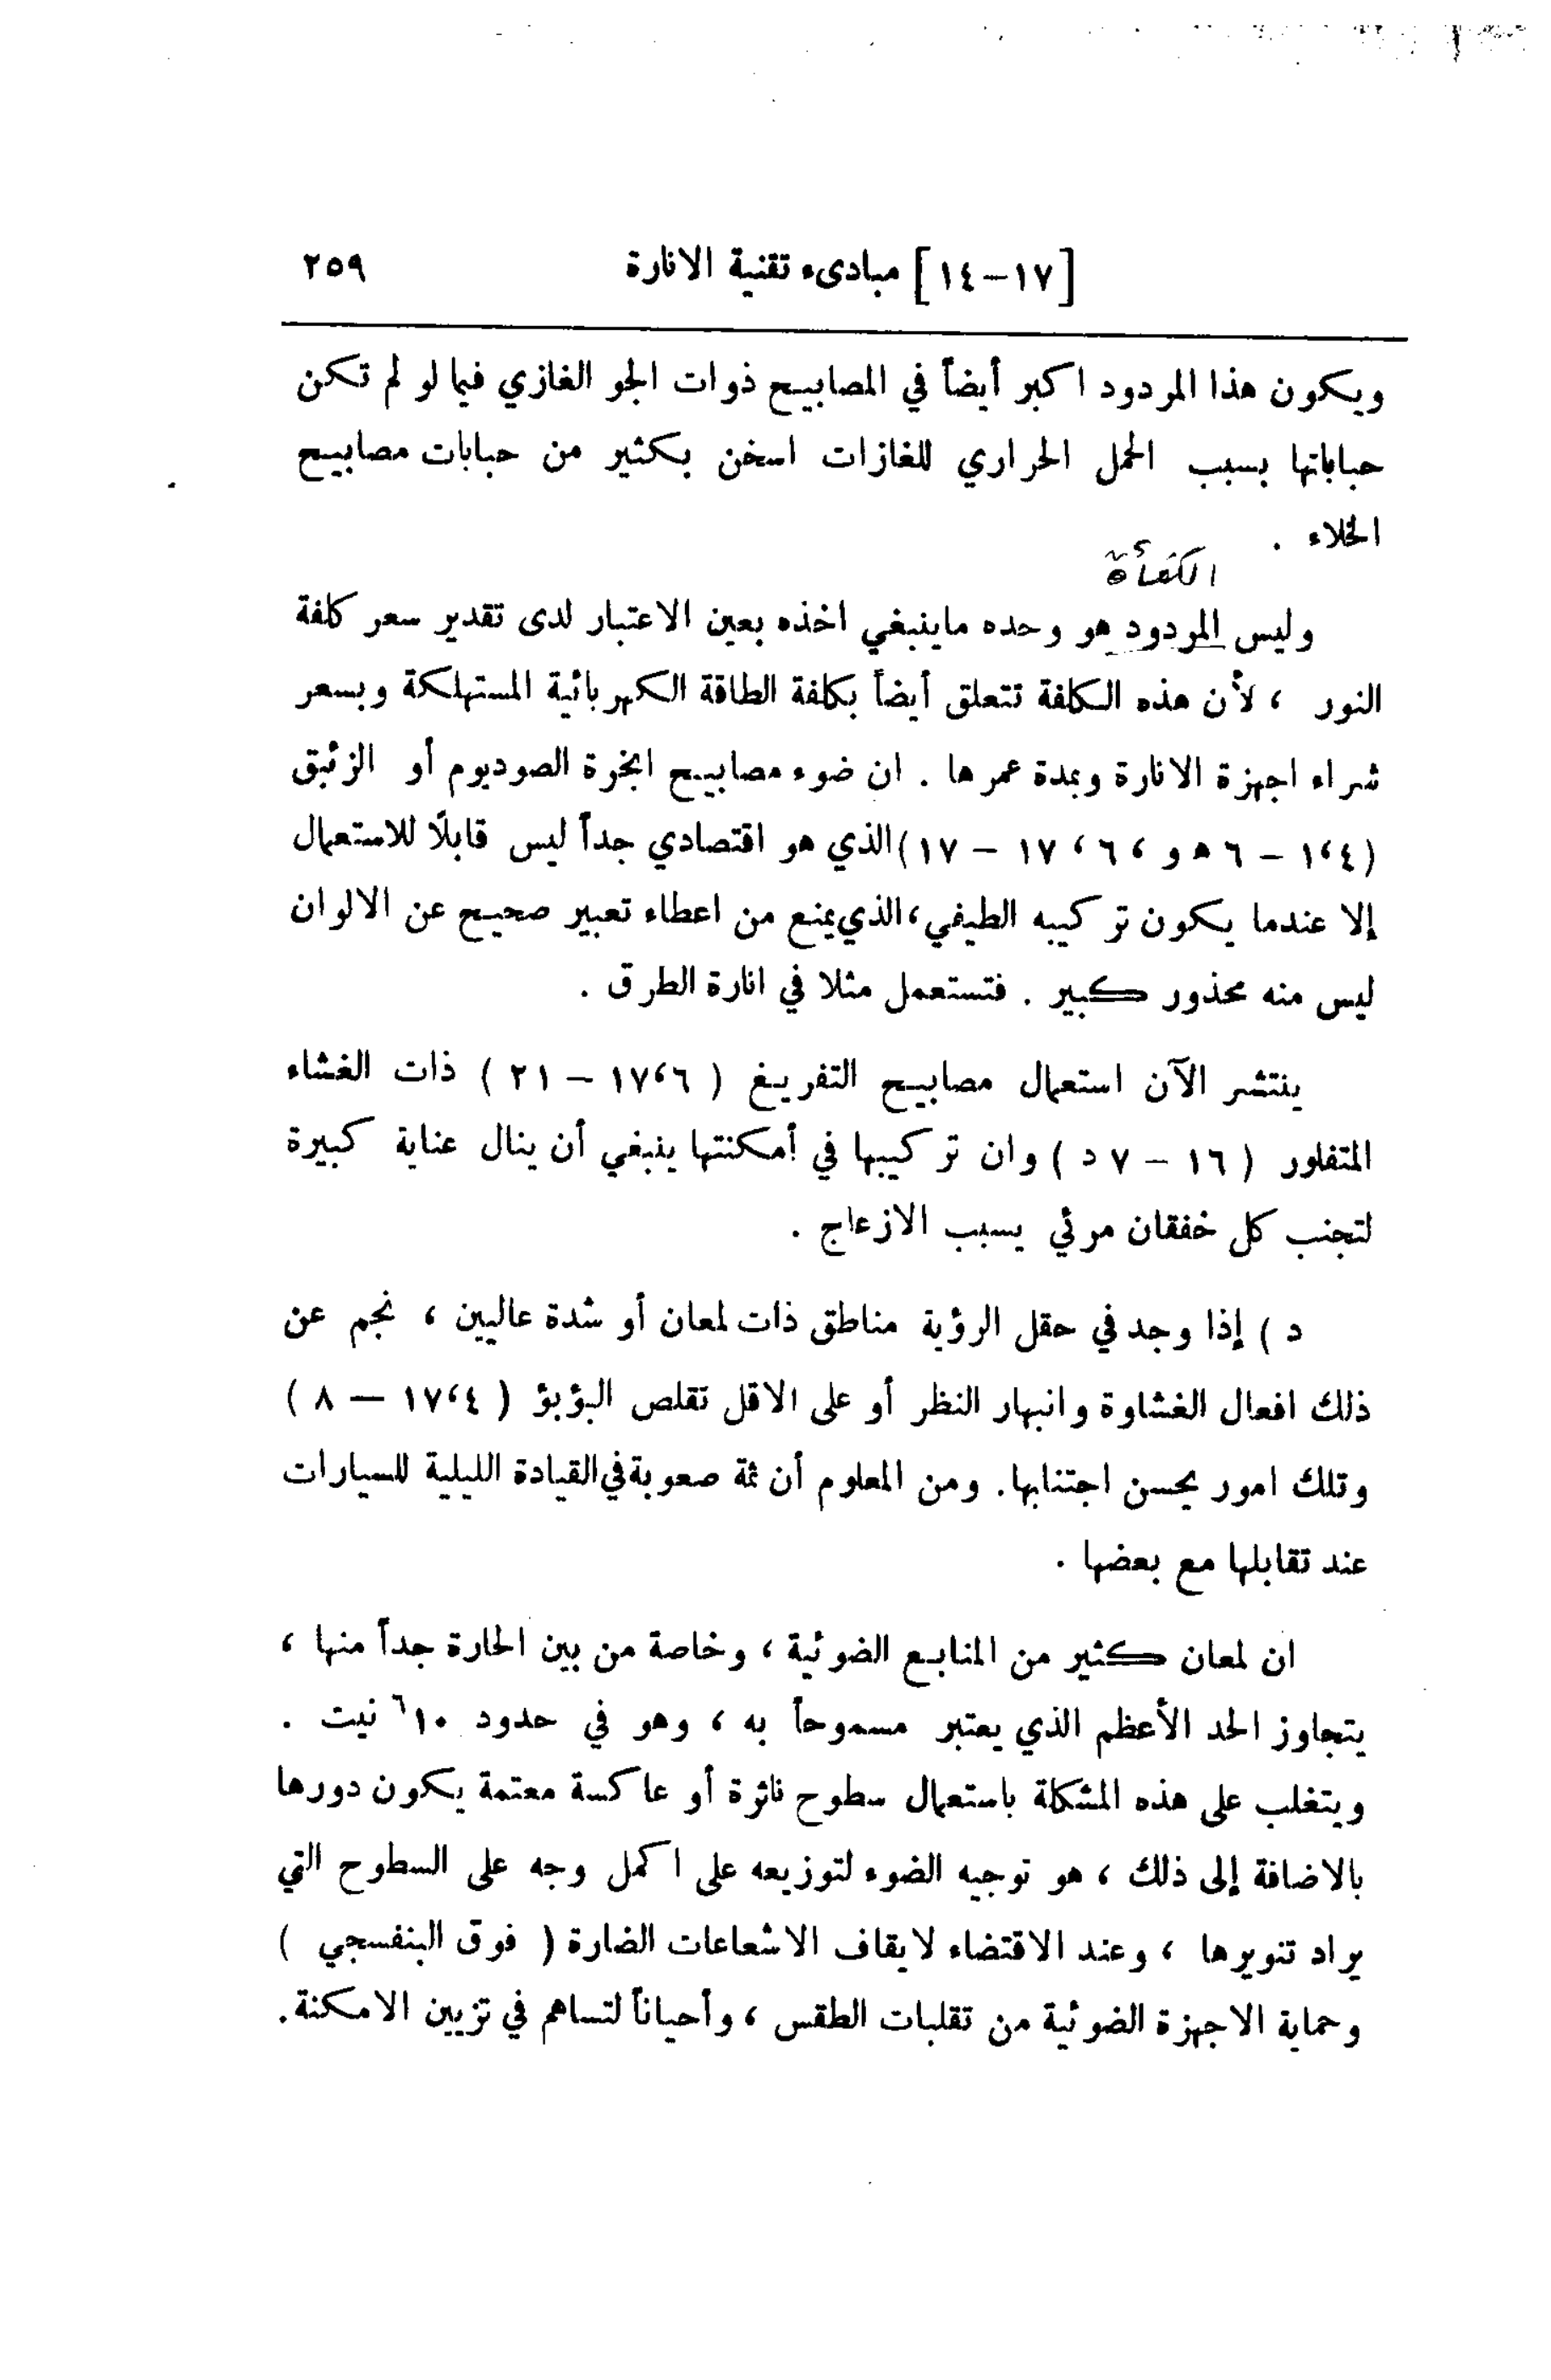 [١٧-١٤] مبادىء تقنية الانارة ٢٥٩
ويكون هذا المردود اكبر أيضاً في المصابيح ذوات الجو الغازي فيما لو لم تكن
حباباتها بسبب الحمل الحراري للغازات اسخن بكثير من حبابات مصابيح
الخلاء .
الكفأة
وليس المردود هو وحده ماينبغي اخذه بعين الاعتبار لدى تقدير سعر كلفة
النور ، لأن هذه الكلفة تتعلق أيضاً بكلفة الطاقة الكهربائية المستهلكة وبسعر
شراء اجهزة الانارة وبمدة عمرها . ان ضوء مصابيح ابخرة الصوديوم أو الزئبق
(١،٤ – ٦ ه و ، ٦ ، ١٧ – ١٧) الذي هو اقتصادي جداً ليس قابلًا للاستعمال
إلا عندما يكون تركيبه الطيفي ، الذي يمنع من اعطاء تعبير صحيح عن الالوان
ليس منه محذور كبير . فتستعمل مثلا في انارة الطرق .
ينتشر الآن استعمال مصابيح التفريغ ( ١٧،٦ – ٢١ ) ذات الغشاء
المتفلور ( ١٦ – ٧ د ) وان تركيبها في أمكنتها ينبغي أن ينال عناية كبيرة
لتجنب كل خفقان مرئي يسبب الازعاج .
د ) إذا وجد في حقل الرؤية مناطق ذات لمعان أو شدة عاليين ، نجم عن
ذلك افعال الغشاوة وانبهار النظر أو على الاقل تقلص البؤبؤ ( ١٧،٤ – ٨ )
وتلك امور يحسن اجتنابها. ومن المعلوم أن ثمة صعوبة في القيادة الليلية للسيارات
عند تقابلها مع بعضها .
ان لمعان كثير من المنابع الضوئية ، وخاصة من بين الحارة جداً منها ،
يتجاوز الحد الأعظم الذي يعتبر مسموحاً به ، وهو في حدود ١٠⁦⁦^٦ نيت .
ويتغلب على هذه المشكلة باستعمال سطوح ناثرة أو عاكسة معتمة يكون دورها
بالاضافة إلى ذلك ، هو توجيه الضوء لتوزيعه على اكمل وجه على السطوح التي
يراد تنويرها ، وعند الاقتضاء لايقاف الاشعاعات الضارة ( فوق البنفسجي )
وحماية الاجهزة الضوئية من تقلبات الطقس ، وأحياناً لتساهم في تزيين الامكنة.